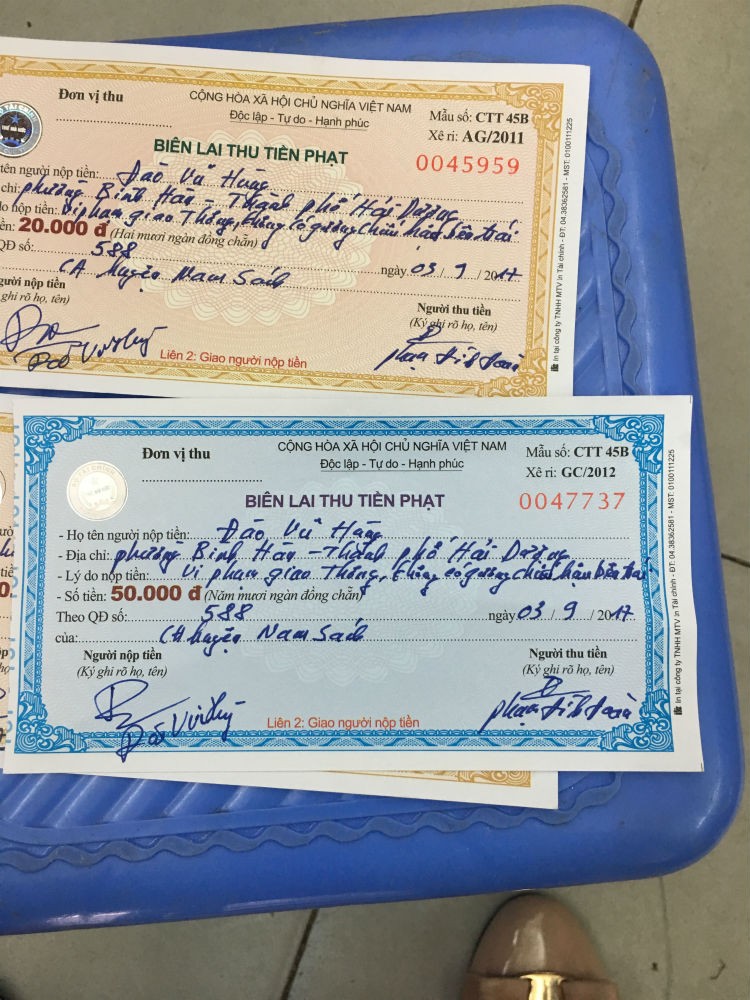 Đơn vị thu
CỘNG HÒA XÃ HỘI CHỦ NGHĨA VIỆT NAM
Độc lập - Tự do - Hạnh phúc
Mẫu số: CTT 45B
Xê ri: AG/2011
BIÊN LAI THU TIỀN PHẠT
0045959
tên người nộp tiền: Đào Vũ Hùng
chỉ: phường Bình Hàn - Thành phố Hải Dương
do nộp tiền: Vi phạm giao thông, không có gương chiếu hậu bên trái
ền: 20.000 đ (Hai mươi ngàn đồng chẵn)
QĐ số: 588
CA huyện Nam Sách ngày 03 / 9 / 2017
gười nộp tiền
ghi rõ họ, tên)
Người thu tiền
(Ký, ghi rõ họ, tên)
Liên 2: Giao người nộp tiền
In tại công ty TNHH MTV in Tài chính - ĐT: 04.38362581 - MST: 0100111225
Đơn vị thu
CỘNG HÒA XÃ HỘI CHỦ NGHĨA VIỆT NAM
Độc lập - Tự do - Hạnh phúc
Mẫu số: CTT 45B
Xê ri: GC/2012
BIÊN LAI THU TIỀN PHẠT
0047737
- Họ tên người nộp tiền: Đào Vũ Hùng
- Địa chỉ: phường Bình Hàn - Thành phố Hải Dương
- Lý do nộp tiền: Vi phạm giao thông, không có gương chiếu hậu bên trái
- Số tiền: 50.000 đ (Năm mươi ngàn đồng chẵn)
Theo QĐ số: 588 ngày 03 / 9 / 2017
của: CA huyện Nam Sách
Người nộp tiền
(Ký, ghi rõ họ, tên)
Người thu tiền
(Ký, ghi rõ họ, tên)
Liên 2: Giao người nộp tiền
In tại công ty TNHH MTV in Tài chính - ĐT: 04.38362581 - MST: 0100111225